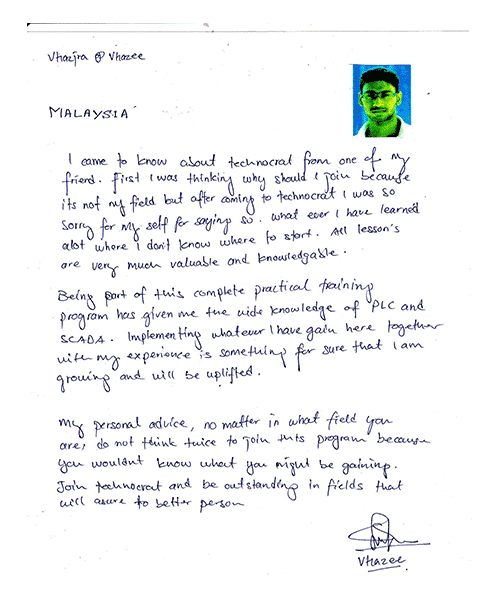 Vhazjra @ Vhazee
MALAYSIA
I came to know about technocrat from one of my
friend. first I was thinking why should I join because
its not my field but after coming to technocrat I was so
sorry for my self for saying so. what ever I have learned
alot where I don't know where to start. All lesson's
are very much valuable and knowledgable.
Being part of this complete practical training
program has given me the wide knowledge of PLC and
SCADA. Implementing whatever I have gain here together
with my experience is something for sure that I am
growing and will be uplifted.
My personal advice, no matter in what field you
are, do not think twice to join this program because
you wouldnt know what you might be gaining.
Join technocrat and be outstanding in fields that
will asure to better person
Vhazee